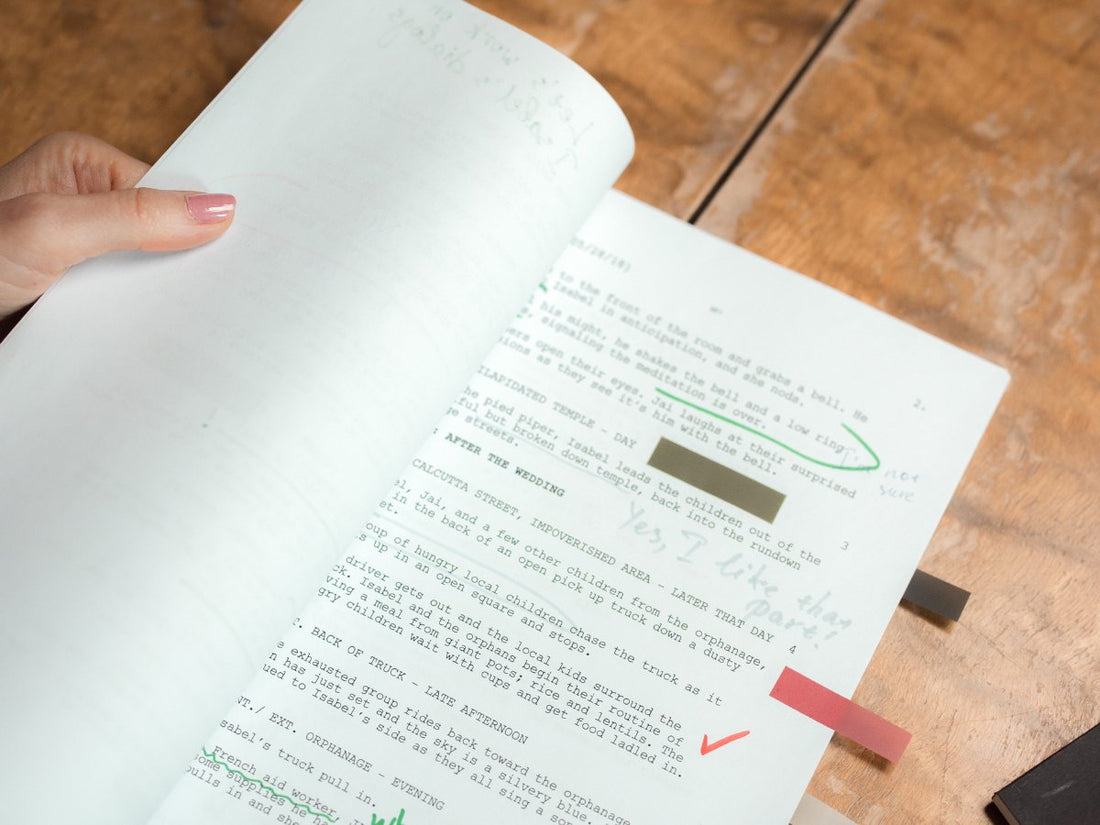 to the front of the room and grabs a bell. He
Isabel in anticipation, and she nods.
2.
his might, he shakes the bell and a low ring
signaling the meditation is over.
open their eyes. Jai laughs at their surprised
as they see it's him with the bell.
I'm not
sure
DILAPIDATED TEMPLE - DAY
3
pied piper, Isabel leads the children out of the
but broken down temple, back into the rundown
streets.
Yes, I like that
part!
AFTER THE WEDDING
CALCUTTA STREET, IMPOVERISHED AREA - LATER THAT DAY
4
Jai, and a few other children from the orphanage,
in the back of an open pick up truck down a dusty
oup of hungry local children chase the truck as it
up in an open square and stops.
driver gets out and the local kids surround the
ck. Isabel and the orphans begin their routine of
ving a meal from giant pots; rice and lentils. The
gry children wait with cups and get food ladled in.
BACK OF TRUCK - LATE AFTERNOON
exhausted group rides back toward the orphanage
has just set and the sky is a silvery blue.
ued to Isabel's side as they all sing a
INT./ EXT. ORPHANAGE - EVENING
sabel's truck pull in.
French aid worker,
some supplies he
pulls in and